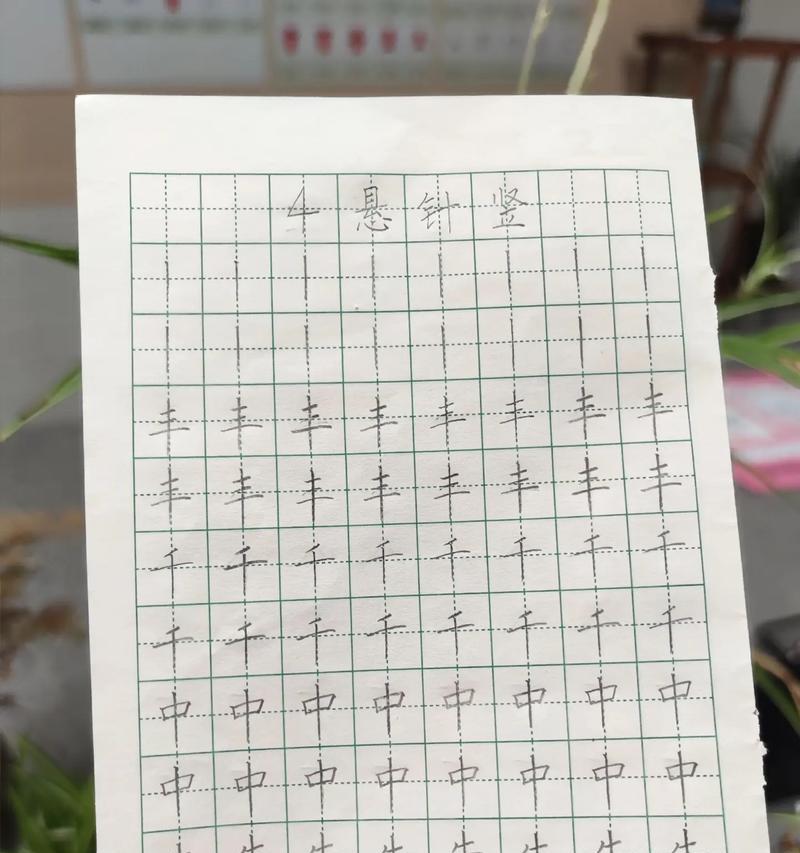 4悬针竖
丨丨丨丨丨丨丨丨
丨丨丨丨丨丨丨丨
丰丰丰丰丰丰丰丰
丰丰丰丰丰丰丰丰
千千千千千千千千
千千千千千千千千
中中中中中中中中
中中中中中中中中